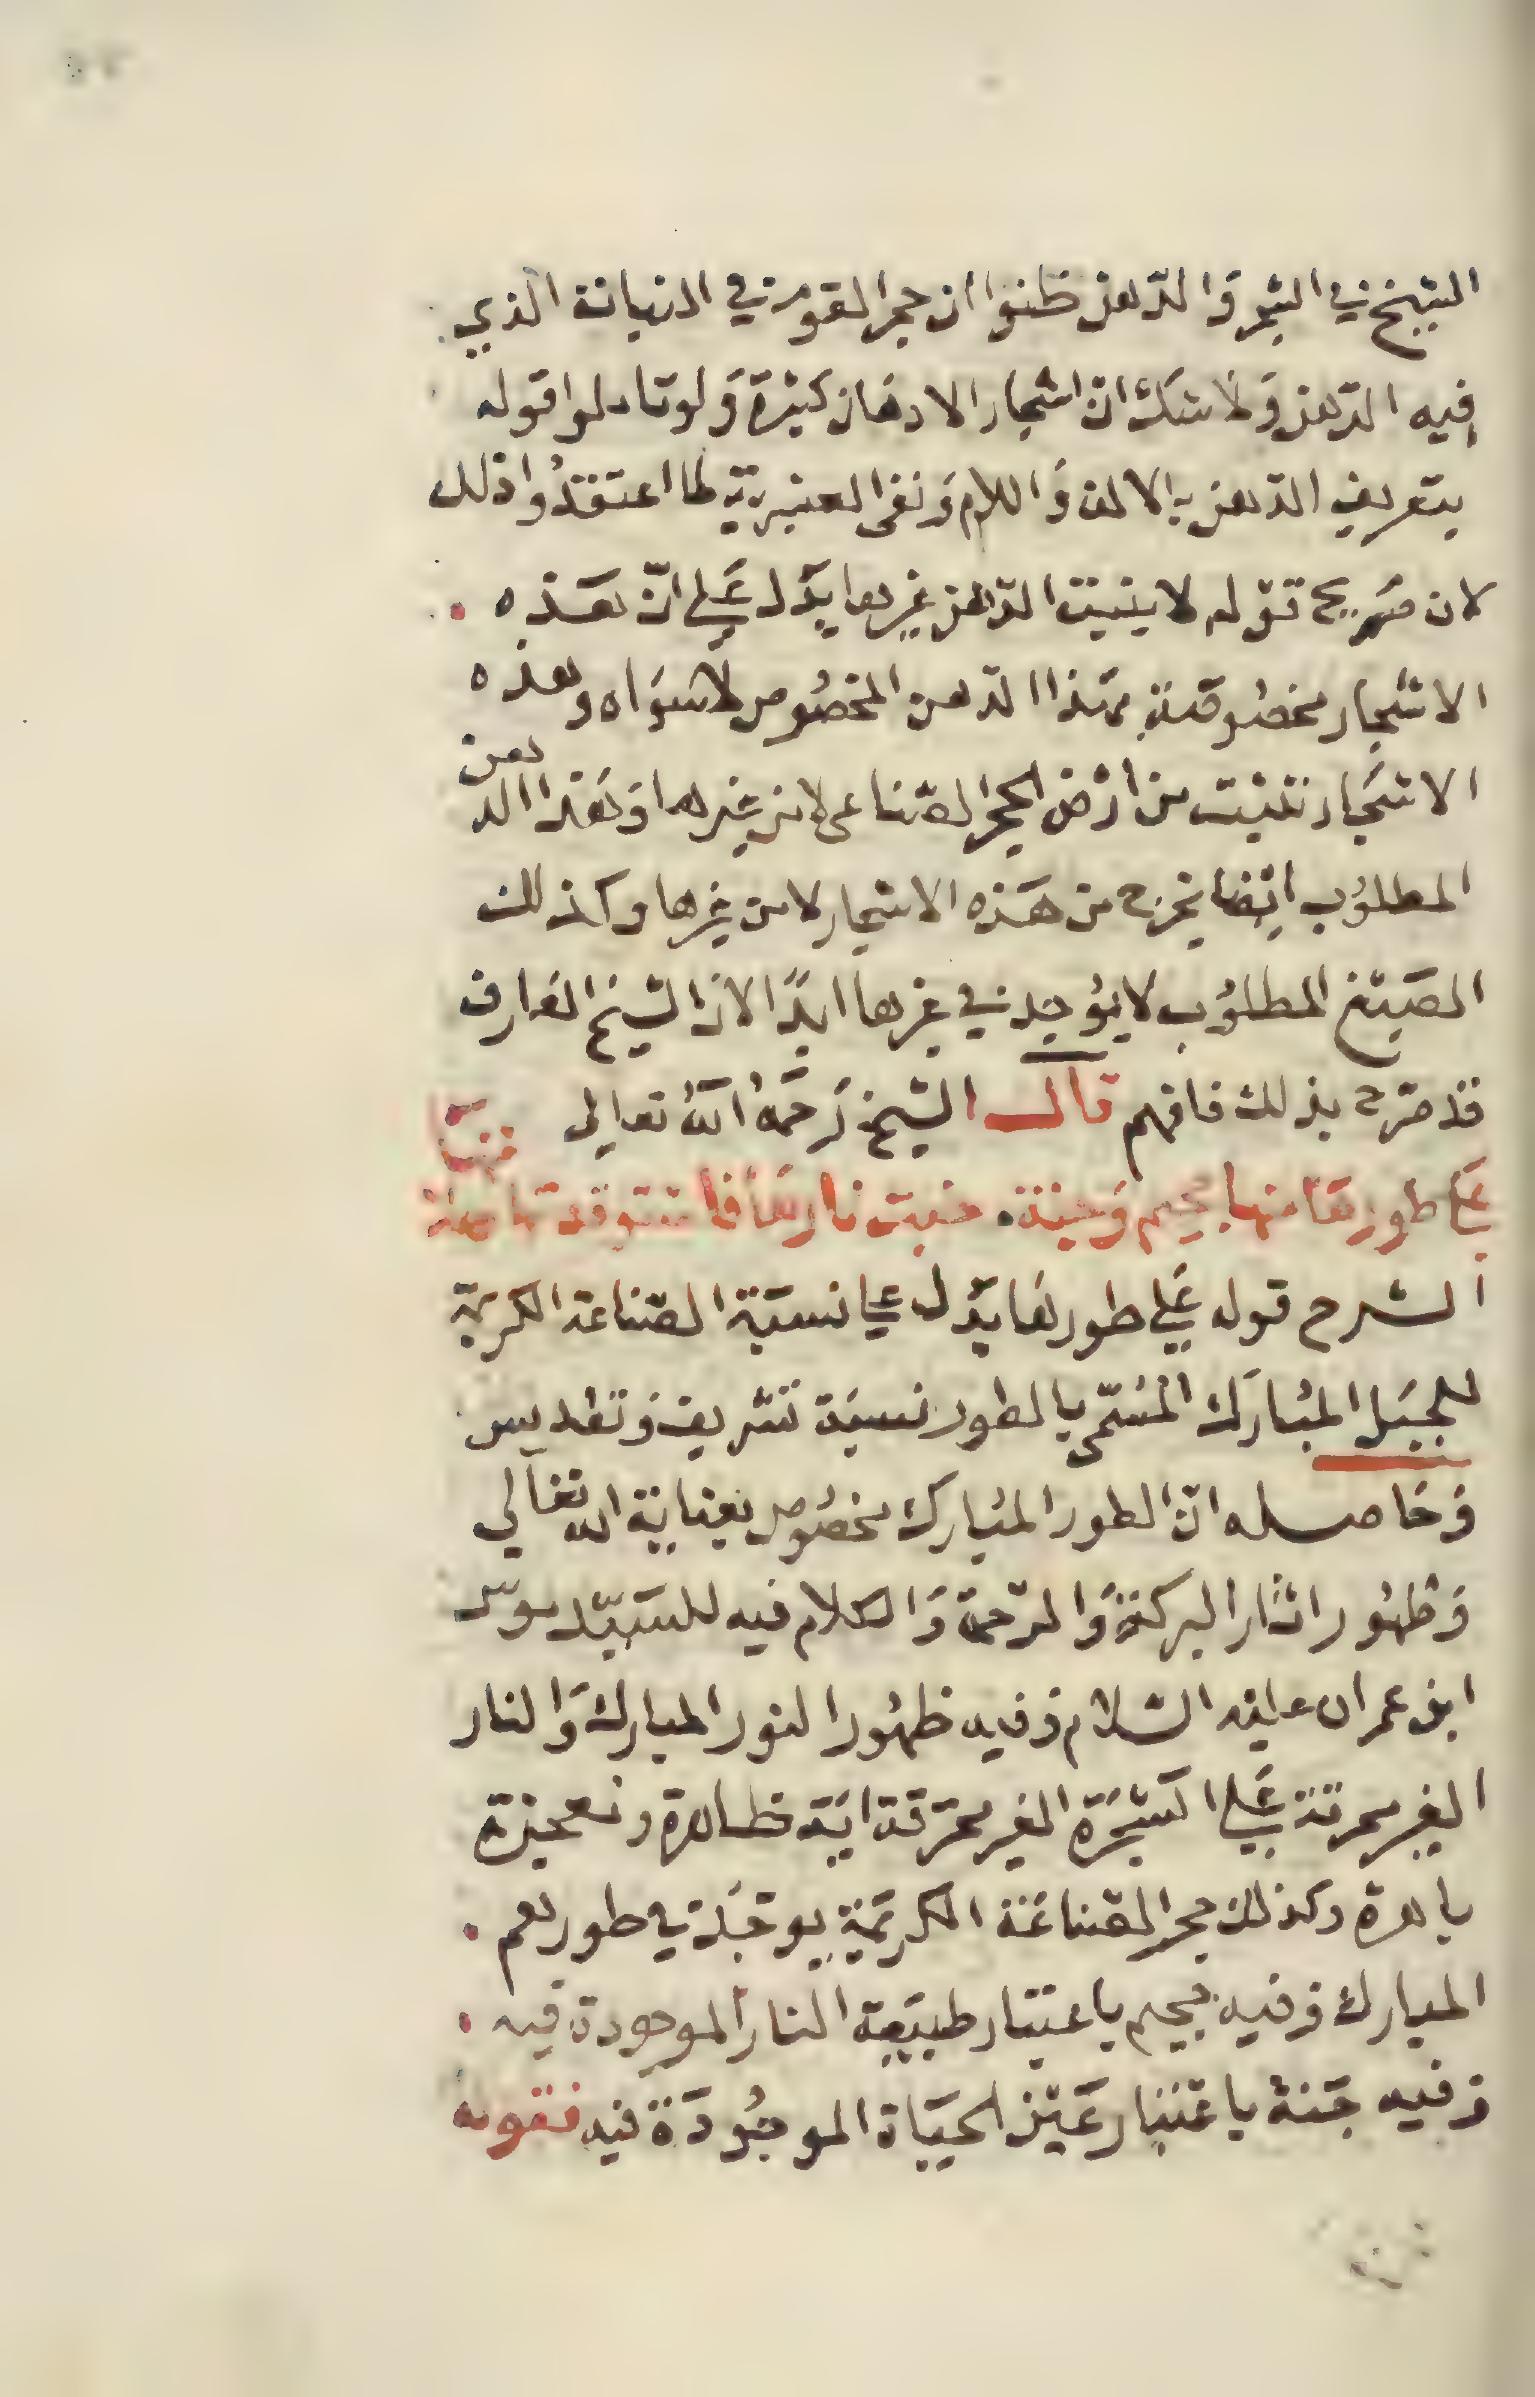 الشيخ في الشجر والدهن ظنوا ان حجر القوم في النباتة الذي
فيه الدهن وَلا شك انّ اشجار الادهان كثيرة وَلو تاملوا قوله
بتعريف الدهن بالالف وَاللام وَنفى الغيرية لما اعتقدُوا ذلك
لان صَريح قوله لا ينبت الدهن غيرها يَدل عَلي انّ هَذه
الاشجار مخصُوصَة بهَذا الدهن المخصُوص لا سِوَاه وهذه
الاشجَار تنبت من ارْض الحجر الصّناعى لا من غيرها وَهَذا الدهن
المطلوُب ايضا يخرج من هَذه الاشجار لا من غيرها وكذلك
الصَبغ المطلوُب لا يوُجد في غيرها ابدًا لان الشيخ العَارف
قد صَرح بذلك فافهم قال الشيخ رَحمَهُ اللهُ تعالى
عَلي طورهَا منها جحيم وَجنة . خبت نارهَا فما تتوقد
الشرح قوله عَلي طورهَا يَدل علي نسبَة الصّناعة الكريمة
للجبَل المُبارَك المُسَمّى بالطور نسبَة تشريف وَتقديس
وَحَاصله انّ الطور المُبارك مخصُوص بعناية الله تعَالي
وَظهُور اثار البركة وَالرّحمة وَالكلام فيه للسَيّد موسى
ابن عمران عليْه السّلام وَفيه ظهُور النور المبارك وَالنار
الغير محرقة عَلي الشجَرَة الغير محترقة ايَة ظاهرة ومعجزة
باهرة وكذلك حجر الصّناعَة الكريمَة يوجَد في طورهم
المبارك وَفيه جحيم باعتبار طبيَعة النار الموجودة فيه
وَفيه جَنة باعتبَار عَيْن الحيَاة الموجُودَة فيه فقوله